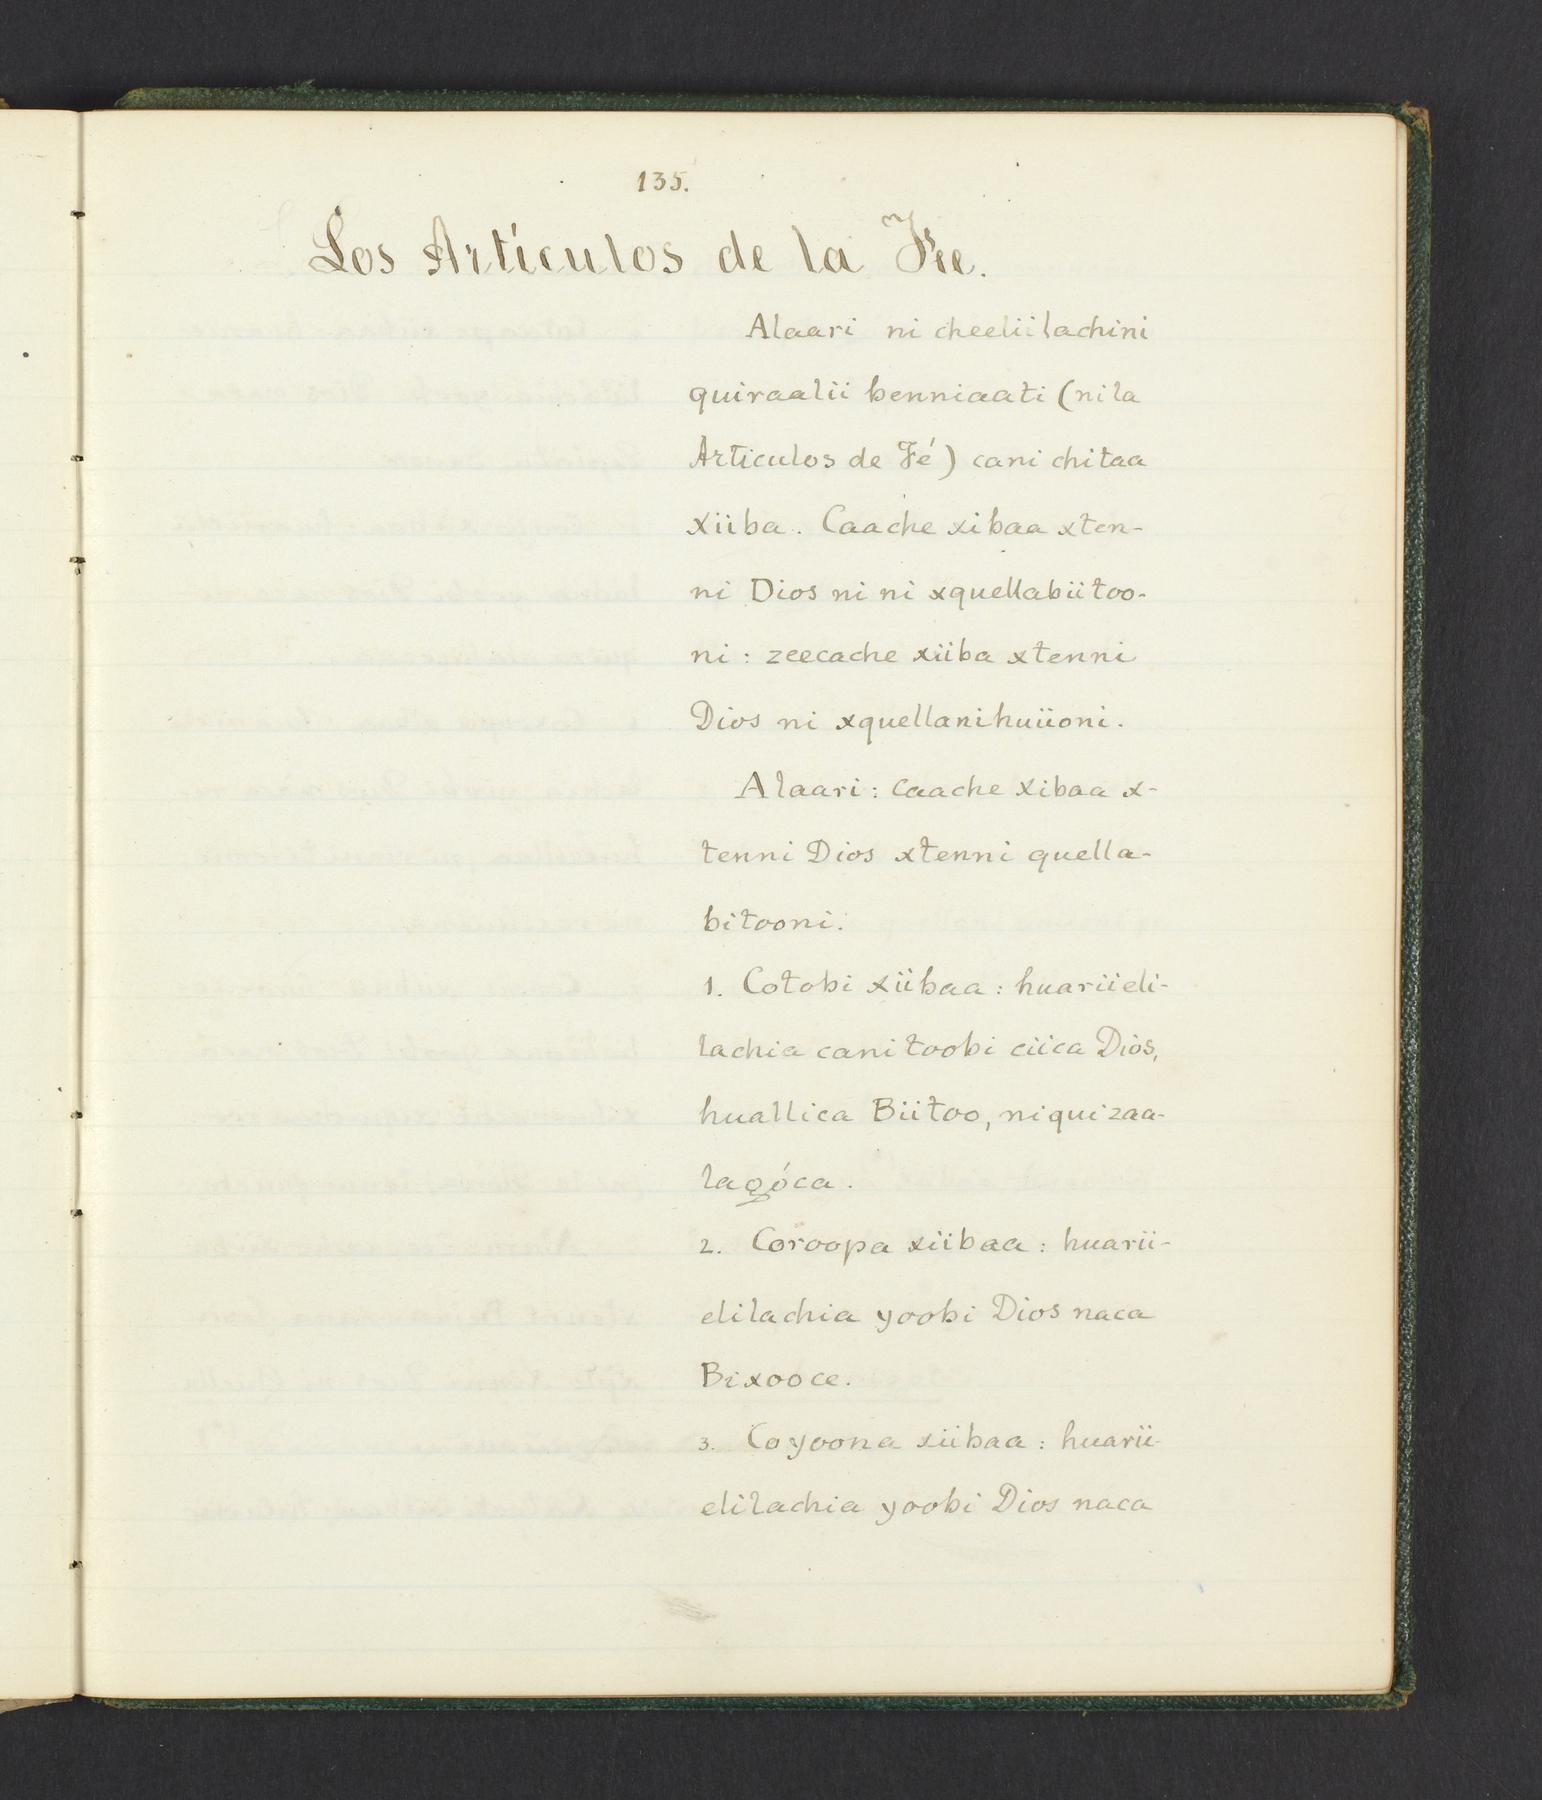 135.
Los Artículos de la Fee.
Alaari ni cheeliilachini
quiraalii benniaati (nila
Articulos de Fé) cani chitaa
xiiba. Caache xibaa xten-
ni Dios ni ni xquellabiitoo-
ni: zeecache xiiba xtenni
Dios ni xquellanihuiioni.
Alaari: caache xibaa x-
tenni Dios xtenni quella-
bitooni.
1. Cotobi xiibaa: huariieli-
lachia cani toobi ciica Dios,
huallica Biitoo, niquizaa-
lagóca.
2. Coroopa xiibaa: huarii-
elilachia yoobi Dios naca
Bixooce.
3. Coyoona xiibaa: huarii-
elilachia yoobi Dios naca